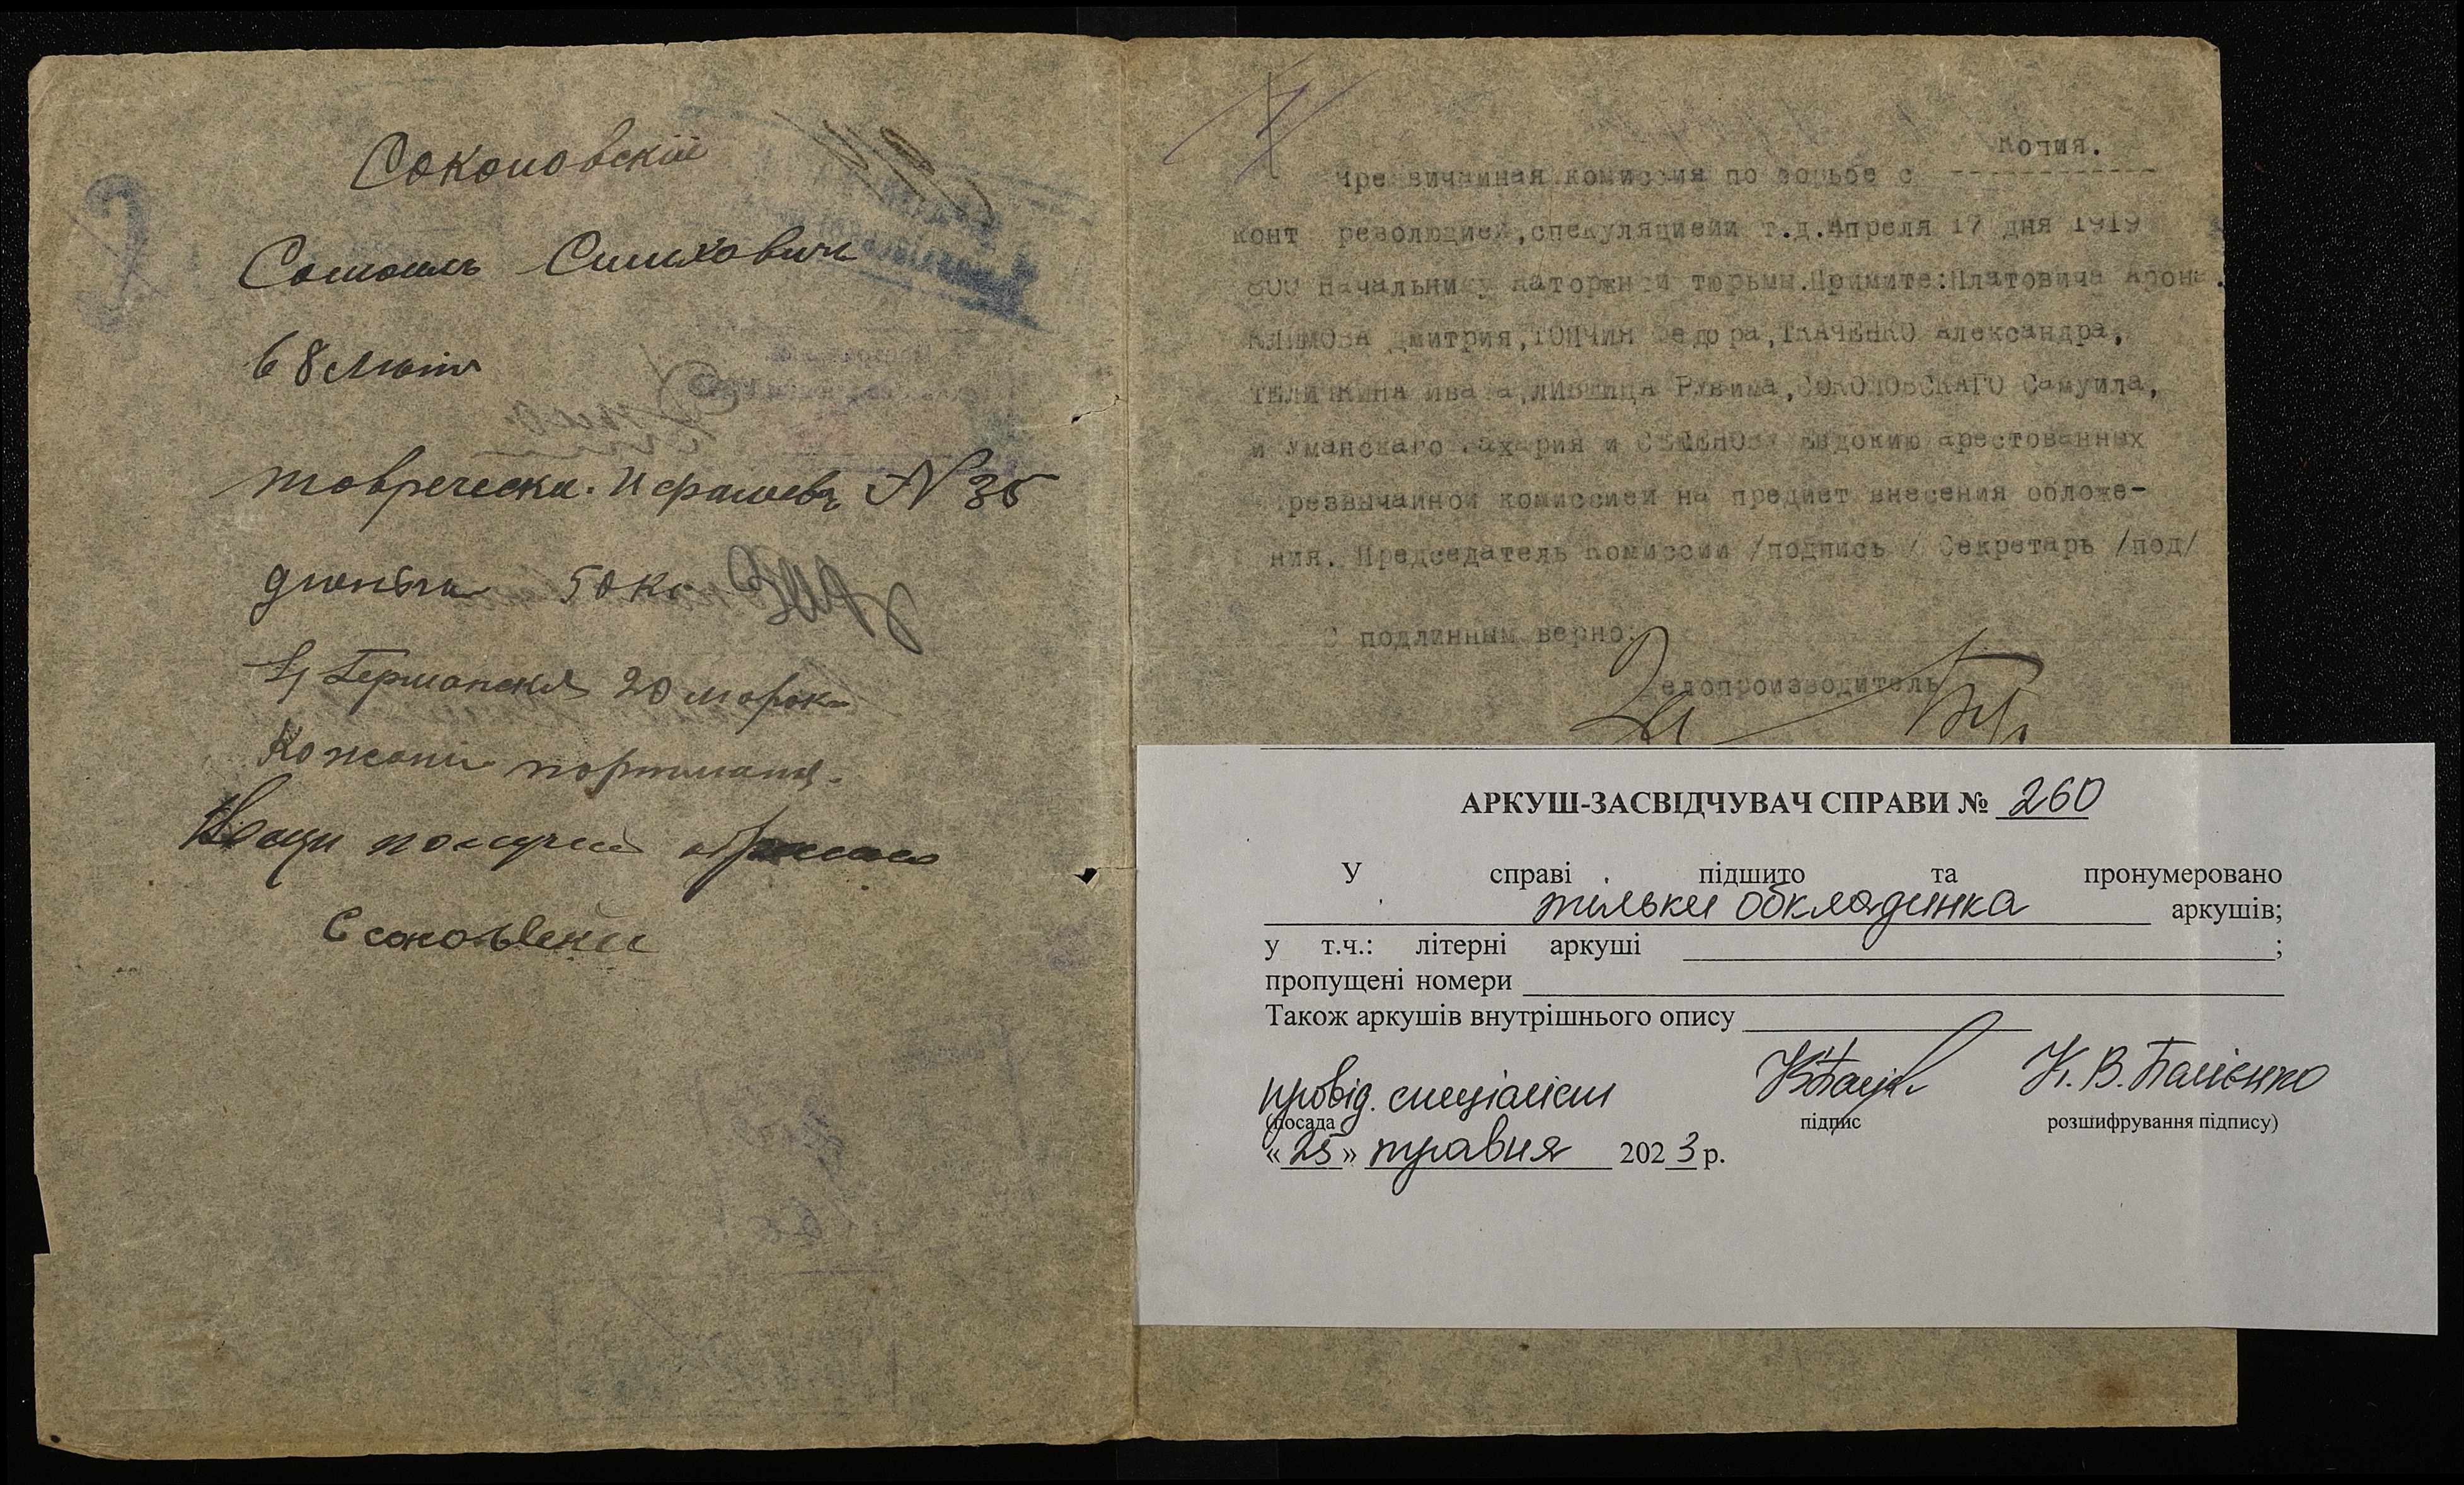 Соколовскій
Самоиль Симхович
68 лет
N 35
50 к.
Германскія 20 марок
Кожани портмане.
Вещи получил обратно
С соколовски
Копия.
Чрезвичайная комиссия по борьбе с
конт революцией,спекуляциейи т.д.Апреля 17 дня 1919
800 Начальнику каторжной тюрьмы.Примите:Платовича Арона.
КЛИМОВА Дмитрия, Федора,ТКАЧЕНКО Александра,
Ивана,ЛИВШИЦА Рувима,СОКОЛОВСКАГО Самуила,
и Уманскаго Захария и СЕМЕНОВУ Евдокию арестованных
резвычайной комиссией на предмет внесения обложе-
ния. Председатель Комиссии /подпись / Секретарь /под/
С подлинным верно:
Делопроизводитель
АРКУШ-ЗАСВІДЧУВАЧ СПРАВИ № 260
У справі підшито та пронумеровано
тільки обкладинка аркушів;
у т.ч.: літерні аркуші ;
пропущені номери
Також аркушів внутрішнього опису
провід. спеціаліст К. В. Балієнко
(посада підпис розшифрування підпису)
«25» травня 2023 р.